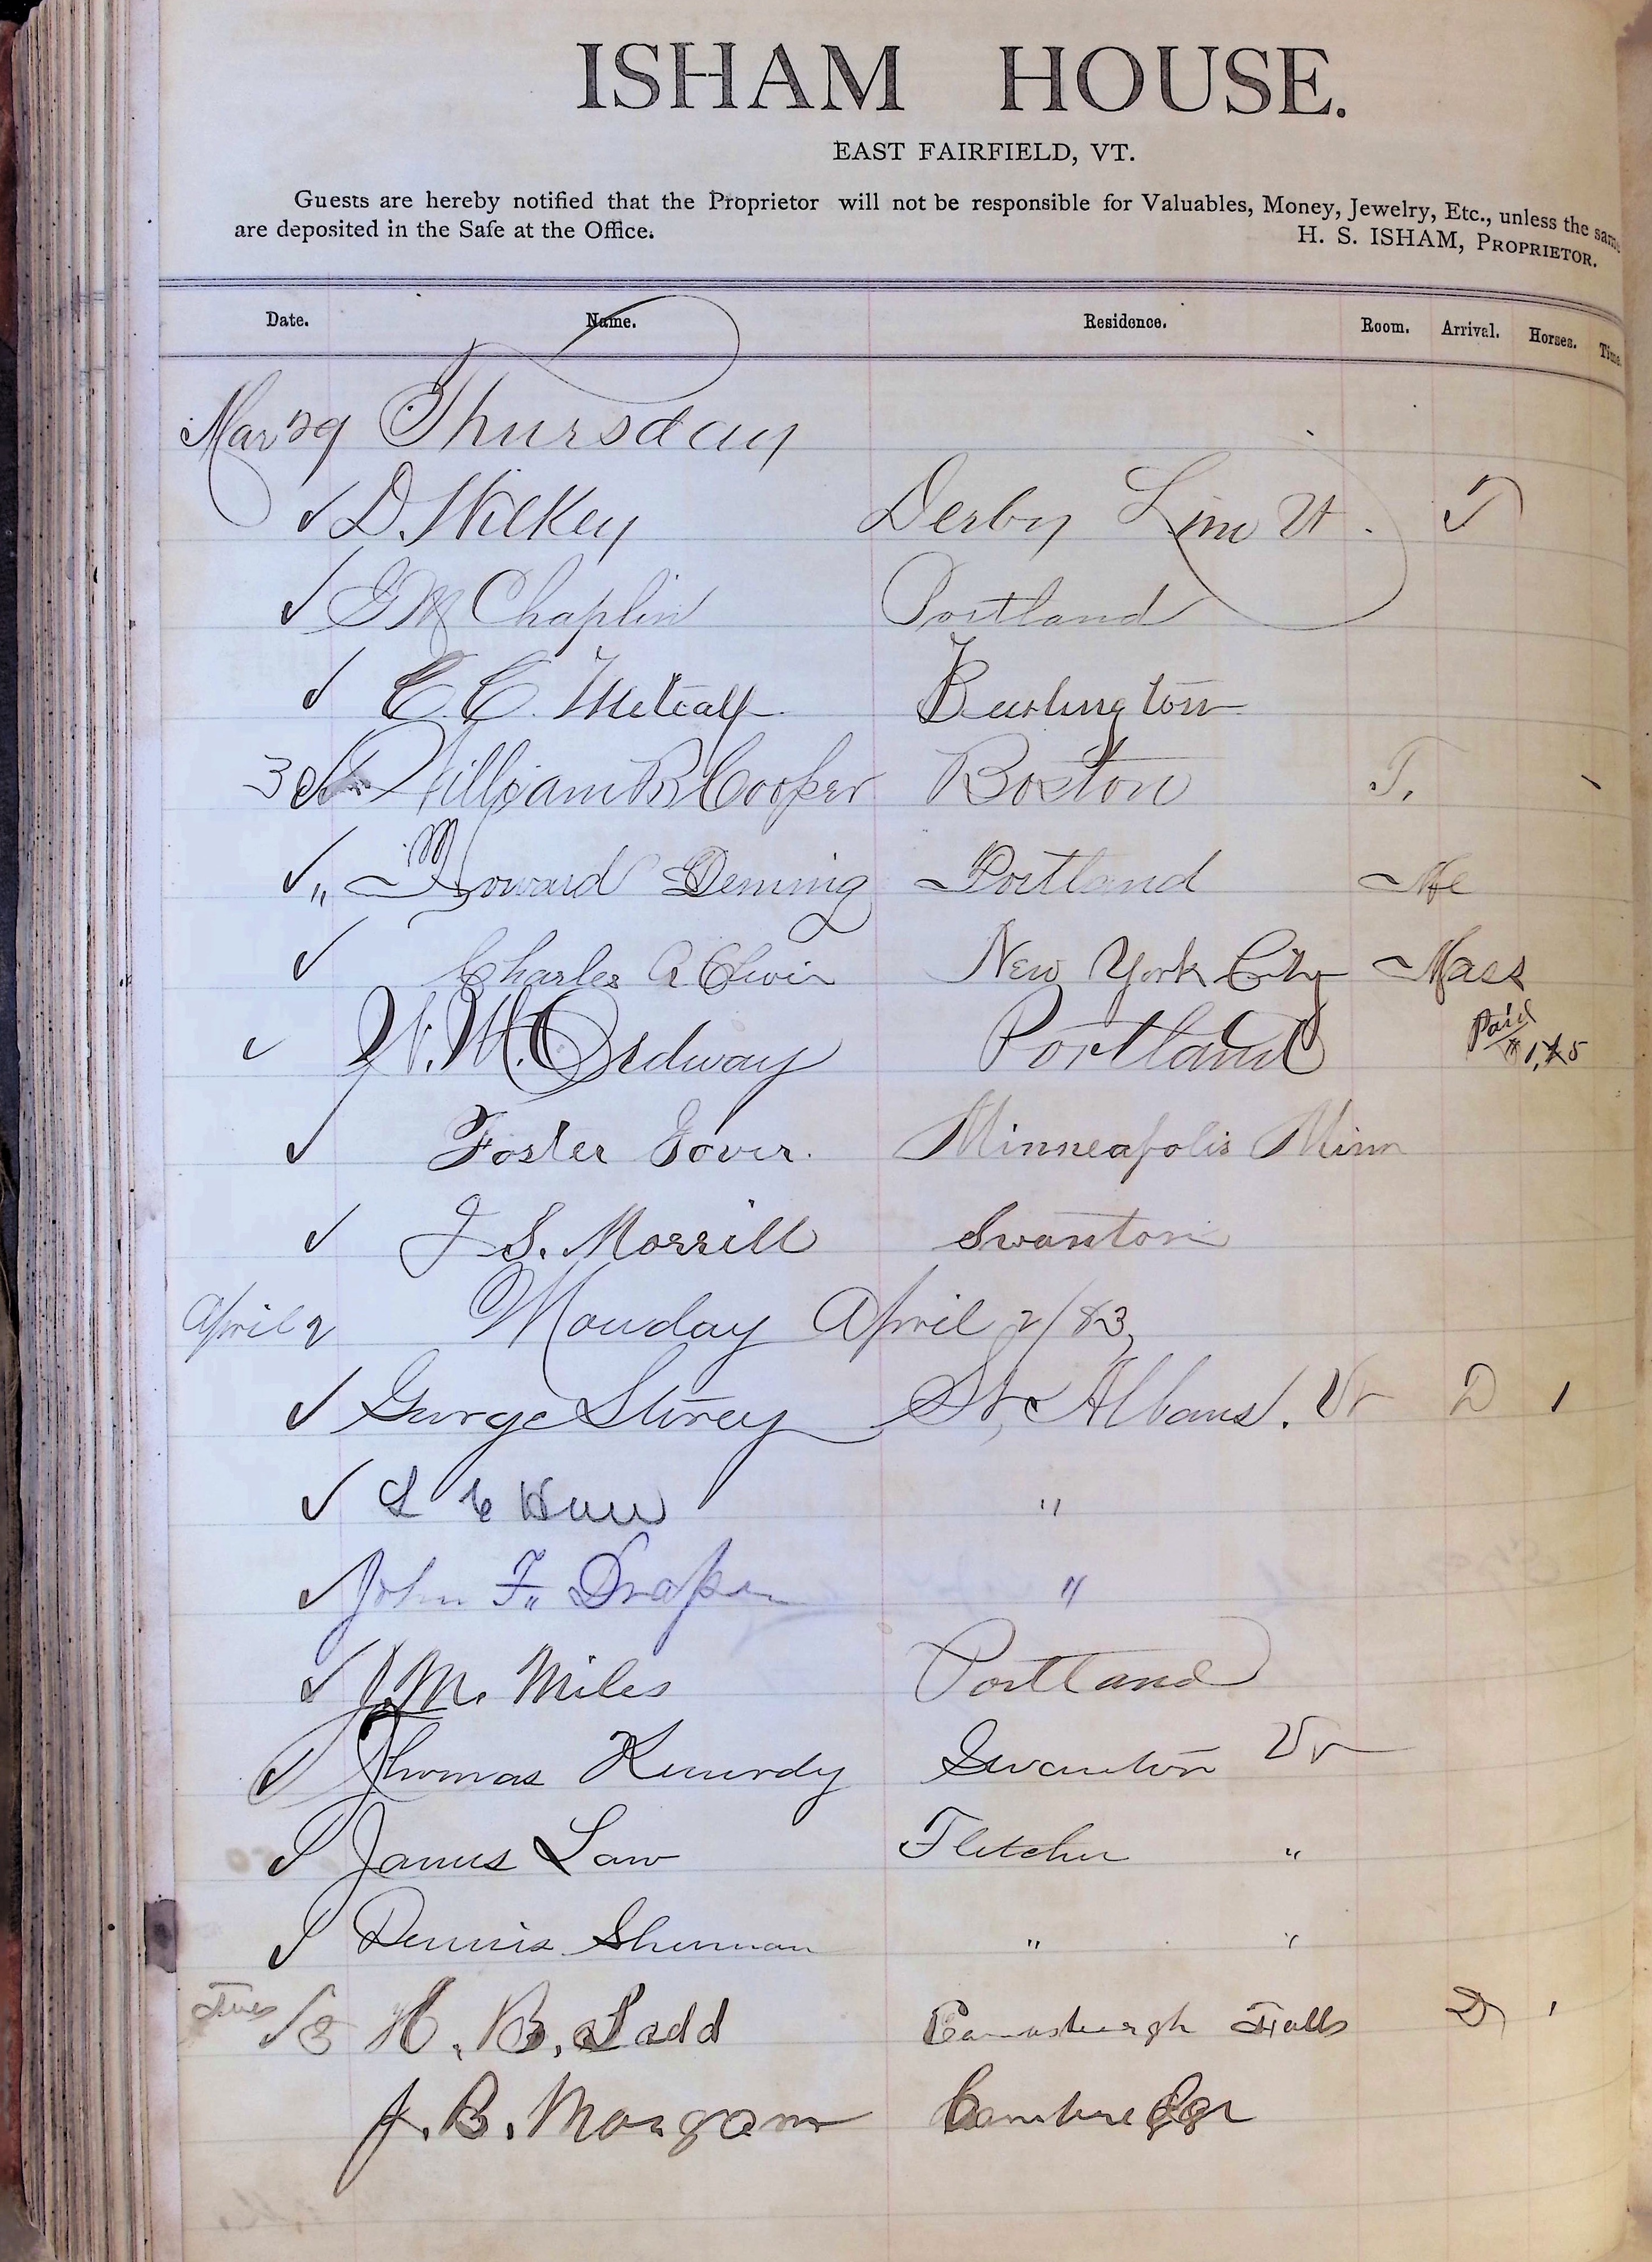 ISHAM HOUSE.
EAST FAIRFIELD, VT.
Guests are hereby notified that the Proprietor will not be responsible for Valuables, Money, Jewelry, Etc., unless the same
are deposited in the Safe at the Office.
H. S. ISHAM, PROPRIETOR.
Date. Name. Residence. Room. Arrival. Horses. Time.
Mar 29 Thursday
✓ D. Wilkey Derby Line Vt.
✓ G M Chaplin Portland
✓ C. C. Metcalf Burlington
30 William B Cooper Boston T.
✓ " Howard Deming Portland Me
✓ Charles A New York City Mass
✓ Ordway Portland Paid
✓ Foster Minneapolis Minn
✓ J S. Morrill Swanton
April 2 Monday April 2/83
✓ George Storey St, Albans. Vt D 1
✓ "
✓ John F. Draper "
✓ J. M. Miles Portland
✓ Thomas Kennedy Swanton Vt
✓ James Law Fletcher "
✓ Dennis Sherman " "
Tues /3 H. B. Ladd Falls D 1
J. B. Morgan Cambredge